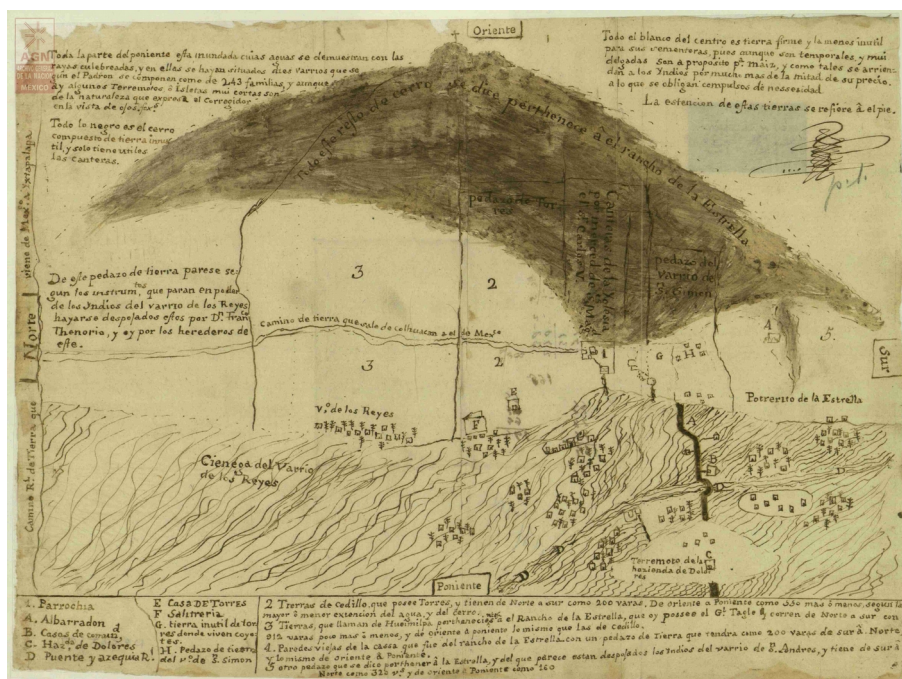 AGN
DE LA NACIÓN
MÉXICO
Oriente
Toda la parte del poniente esta inundada cuias aguas se demuestran con las
rayas culebreadas, y en ellas se hayan situados diez varrios que se
gun el Padron se componen como de 243 familias, y aunque
ay algunos Terremotos, ô Isletas mui cortas son
de la naturaleza que expresa el Corregidor
en la vista de ojos
Todo lo negro es el cerro
compuesto de tierra innu
til, y solo tiene utiles
las canteras.
Todo el blanco del centro es tierra firme y la menos inutil
para sus cementeras, pues aunque son temporales, y mui
delgadas son a proposito pª. maiz, y como tales se arrien
dan a los Indios por mucho mas de la mitad de su precio,
a lo que se obligan compulsos de nessesidad.
La estencion de estas tierras se refiere â el pie.
Todo el resto de cerro es el que perthenece â el rancho de la Estrella
pedazo de Tor
res
pedazo del
Varrio de
S. Simon
viene de Mexº. a Yxtapalapa
Norte
Camino Rl. de Tierra que
De este pedazo de tierra parese se
gun los instrumtos. que paran en poder
de los Indios del varrio de los Reyes
hayarse despojados estos por Dn. Fran
Thenorio, y oy por los herederos de
este.
3
2
Camino de tierra que sale de Culhuacan a el de Mexº.
3
2
G
H
A
5.
Sur
Vº. de los Reyes
E
F
A
Potrerito de la Estrella
Cienega del Varrio
de los Reyes
D
D
D
Terremoto de la
hazienda de Dolo
res
C
Poniente
1. Parrochia
A. Albarradon
B. Casas de comunid
C. Hazª. de Dolores
D Puente y azequia Rl.
E CASA DE TORRES
F. Salitreria
G. tierra inutil de tor
res donde viven coyo
tes.
H. Pedazo de tierra
del vº. de S. Simon
2 Tierras de Cedillo, que posee Torres, y tienen de Norte a sur como 200 varas. De oriente a Poniente como 550 mas ô menos, segun la
mayor ô menor extencion del agua, y del cerro.
3 Tierras, que llaman de Hueimilpa perthenecies â el Rancho de la Estrella, que oy posseé el Gl. Tagle y corron de Norte a sur con
912 varas poco mas ô menos, y de oriente â poniente lo mismo que las de Cedillo.
4. Paredes viejas de la cassa que fue del rancho de la Estrella. con un pedazo de Tierra que tendra como 200 varas de sur â Norte,
y lo mismo de oriente â Poniente.
5 otro pedazo que se dice perthener â la Estrella, y del que parece estan despojados los Indios del varrio de S. Andres, y tiene de sur â
Norte como 312 vs. y de oriente â Poniente como 260